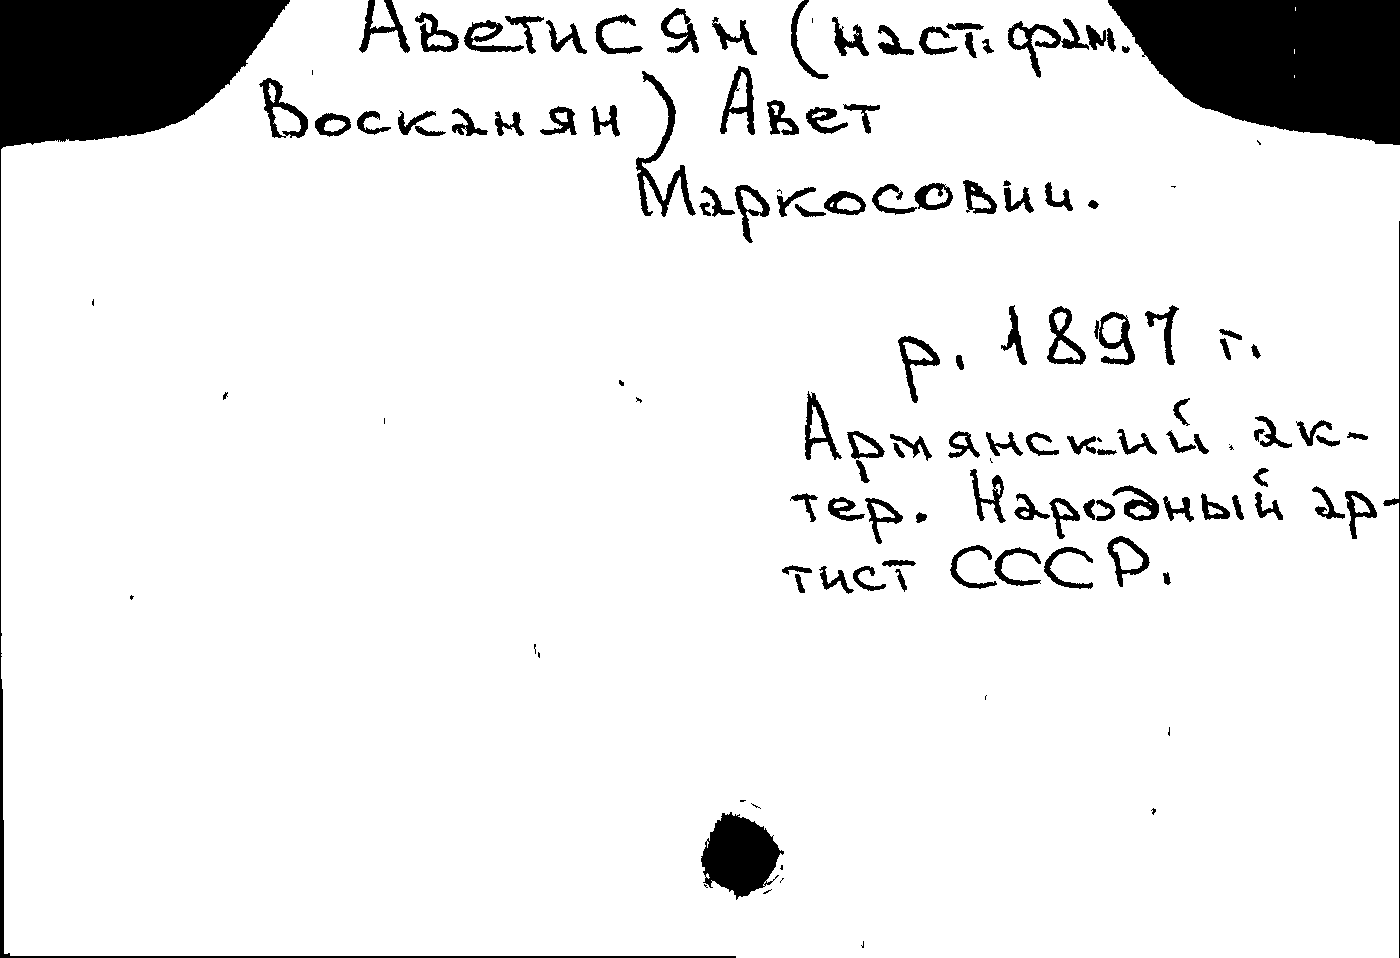 Аветисян (наст. фам.
Восканян) Авет
Маркосович.
р. 1897 г.
Армянский ак-
тер. Народный ар-
тист СССР.